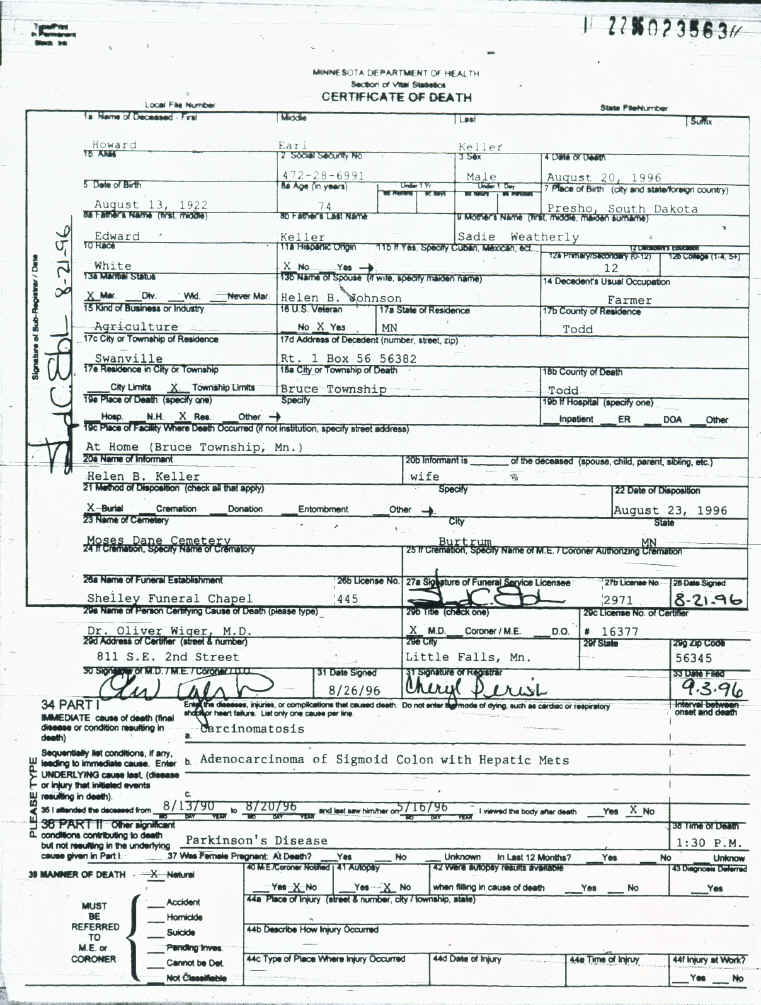 Type/Print
in Permanent
Black Ink
MINNESOTA DEPARTMENT OF HEALTH
Section of Vital Statistics
CERTIFICATE OF DEATH
Local File Number State File Number
1a Name of Deceased - First Middle Last Suffix
Howard Earl Keller
1b Alias 2 Social Security No 3 Sex 4 Date of Death
472-28-6991 Male August 20, 1996
5 Date of Birth 6a Age (in years) Under 1 Yr Under 1 Day 7 Place of Birth (city and state/foreign country)
August 13, 1922 74 Presho, South Dakota
8a Father's Name (first, middle) 8b Father's Last Name 9 Mother's Name (first, middle, maiden surname)
Edward Keller Sadie Weatherly
10 Race 11a Hispanic Origin 11b If Yes, Specify Cuban, Mexican, ect. 12 Decedent's Education
12a Primary/Secondary (0-12) 12b College (1-4, 5+)
White X No Yes 12
13a Marital Status 13b Name of Spouse (if wife, specify maiden name) 14 Decedent's Usual Occupation
X Mar. Div. Wid. Never Mar. Helen B. Johnson Farmer
15 Kind of Business or Industry 16 U.S. Veteran 17a State of Residence 17b County of Residence
Agriculture No X Yes MN Todd
17c City or Township of Residence 17d Address of Decedent (number, street, zip)
Swanville Rt. 1 Box 56 56382
17e Residence in City or Township 18a City or Township of Death 18b County of Death
City Limits X Township Limits Bruce Township Todd
19a Place of Death (specify one) Specify 19b If Hospital (specify one)
Hosp. N.H. X Res. Other Inpatient ER DOA Other
19c Place of Facility Where Death Occurred (if not institution, specify street address)
At Home (Bruce Township, Mn.)
20a Name of Informant 20b Informant is ______ of the deceased (spouse, child, parent, sibling, etc.)
Helen B. Keller wife
21 Method of Disposition (check all that apply) Specify 22 Date of Disposition
X Burial Cremation Donation Entombment Other August 23, 1996
23 Name of Cemetery City State
Moses Dane Cemetery Burtrum MN
24 If Cremation, Specify Name of Crematory 25 If Cremation, Specify Name of M.E. / Coroner Authorizing Cremation
26a Name of Funeral Establishment 26b License No. 27a Signature of Funeral Service Licensee 27b License No. 28 Date Signed
Shelley Funeral Chapel 445 2971 8-21-96
29a Name of Person Certifying Cause of Death (please type) 29b Title (check one) 29c License No. of Certifier
Dr. Oliver Wiger, M.D. X M.D. Coroner / M.E. D.O. # 16377
29d Address of Certifier (street & number) 29e City 29f State 29g Zip Code
811 S.E. 2nd Street Little Falls, Mn. 56345
30 Signature of M.D. / M.E. / Coroner / D.O. 31 Date Signed 31 Signature of Registrar 33 Date Filed
8/26/96 Cheryl Perish 9.3.96
34 PART I Enter the diseases, injuries, or complications that caused death. Do not enter the mode of dying, such as cardiac or respiratory Interval between
shock or heart failure. List only one cause per line. onset and death
IMMEDIATE cause of death (final
disease or condition resulting in
death)
a. Carcinomatosis
Sequentially list conditions, if any,
leading to immediate cause. Enter b. Adenocarcinoma of Sigmoid Colon with Hepatic Mets
UNDERLYING cause last, (disease
or injury that initiated events
resulting in death). c.
35 I attended the deceased from 8/13/90 to 8/20/96 and last saw him/her on 5/16/96 I viewed the body after death Yes X No
MO DAY YEAR MO DAY YEAR MO DAY YEAR
36 PART II Other significant 38 Time of Death
conditions contributing to death
but not resulting in the underlying Parkinson's Disease 1:30 P.M.
cause given in Part I. 37 Was Female Pregnant: At Death? Yes No Unknown In Last 12 Months? Yes No Unknow
39 MANNER OF DEATH X Natural 40 M.E./Coroner Notified 41 Autopsy 42 Were autopsy results available 43 Diagnosis Deferred
Yes X No Yes X No when filling in cause of death Yes No Yes
44a Place of Injury (street & number, city / township, state)
MUST
BE
REFERRED
TO
M.E. or
CORONER
Accident
Homicide
Suicide
Pending Inves.
Cannot be Det.
Not Classifiable
44b Describe How Injury Occurred
44c Type of Place Where Injury Occurred 44d Date of Injury 44e Time of Injruy 44f Injury at Work?
Yes No
Signature of Sub-Registrar / Date
8-21-96
PLEASE TYPE